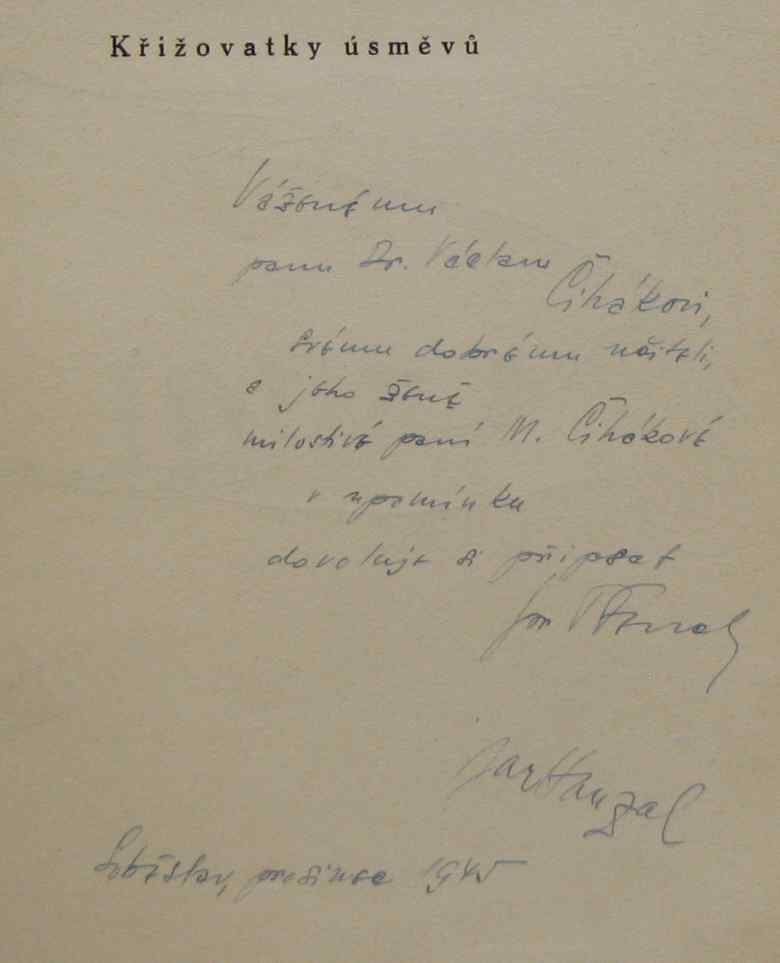 Křižovatky úsměvů
Váženému
panu Dr. Václavu
Čihákovi,
svému dobrému učiteli,
a jeho ženě
milostivé paní M. Čihákové
v upomínku
dovoluje si připsat
Jan
Jar Hanzal
prosince 1945